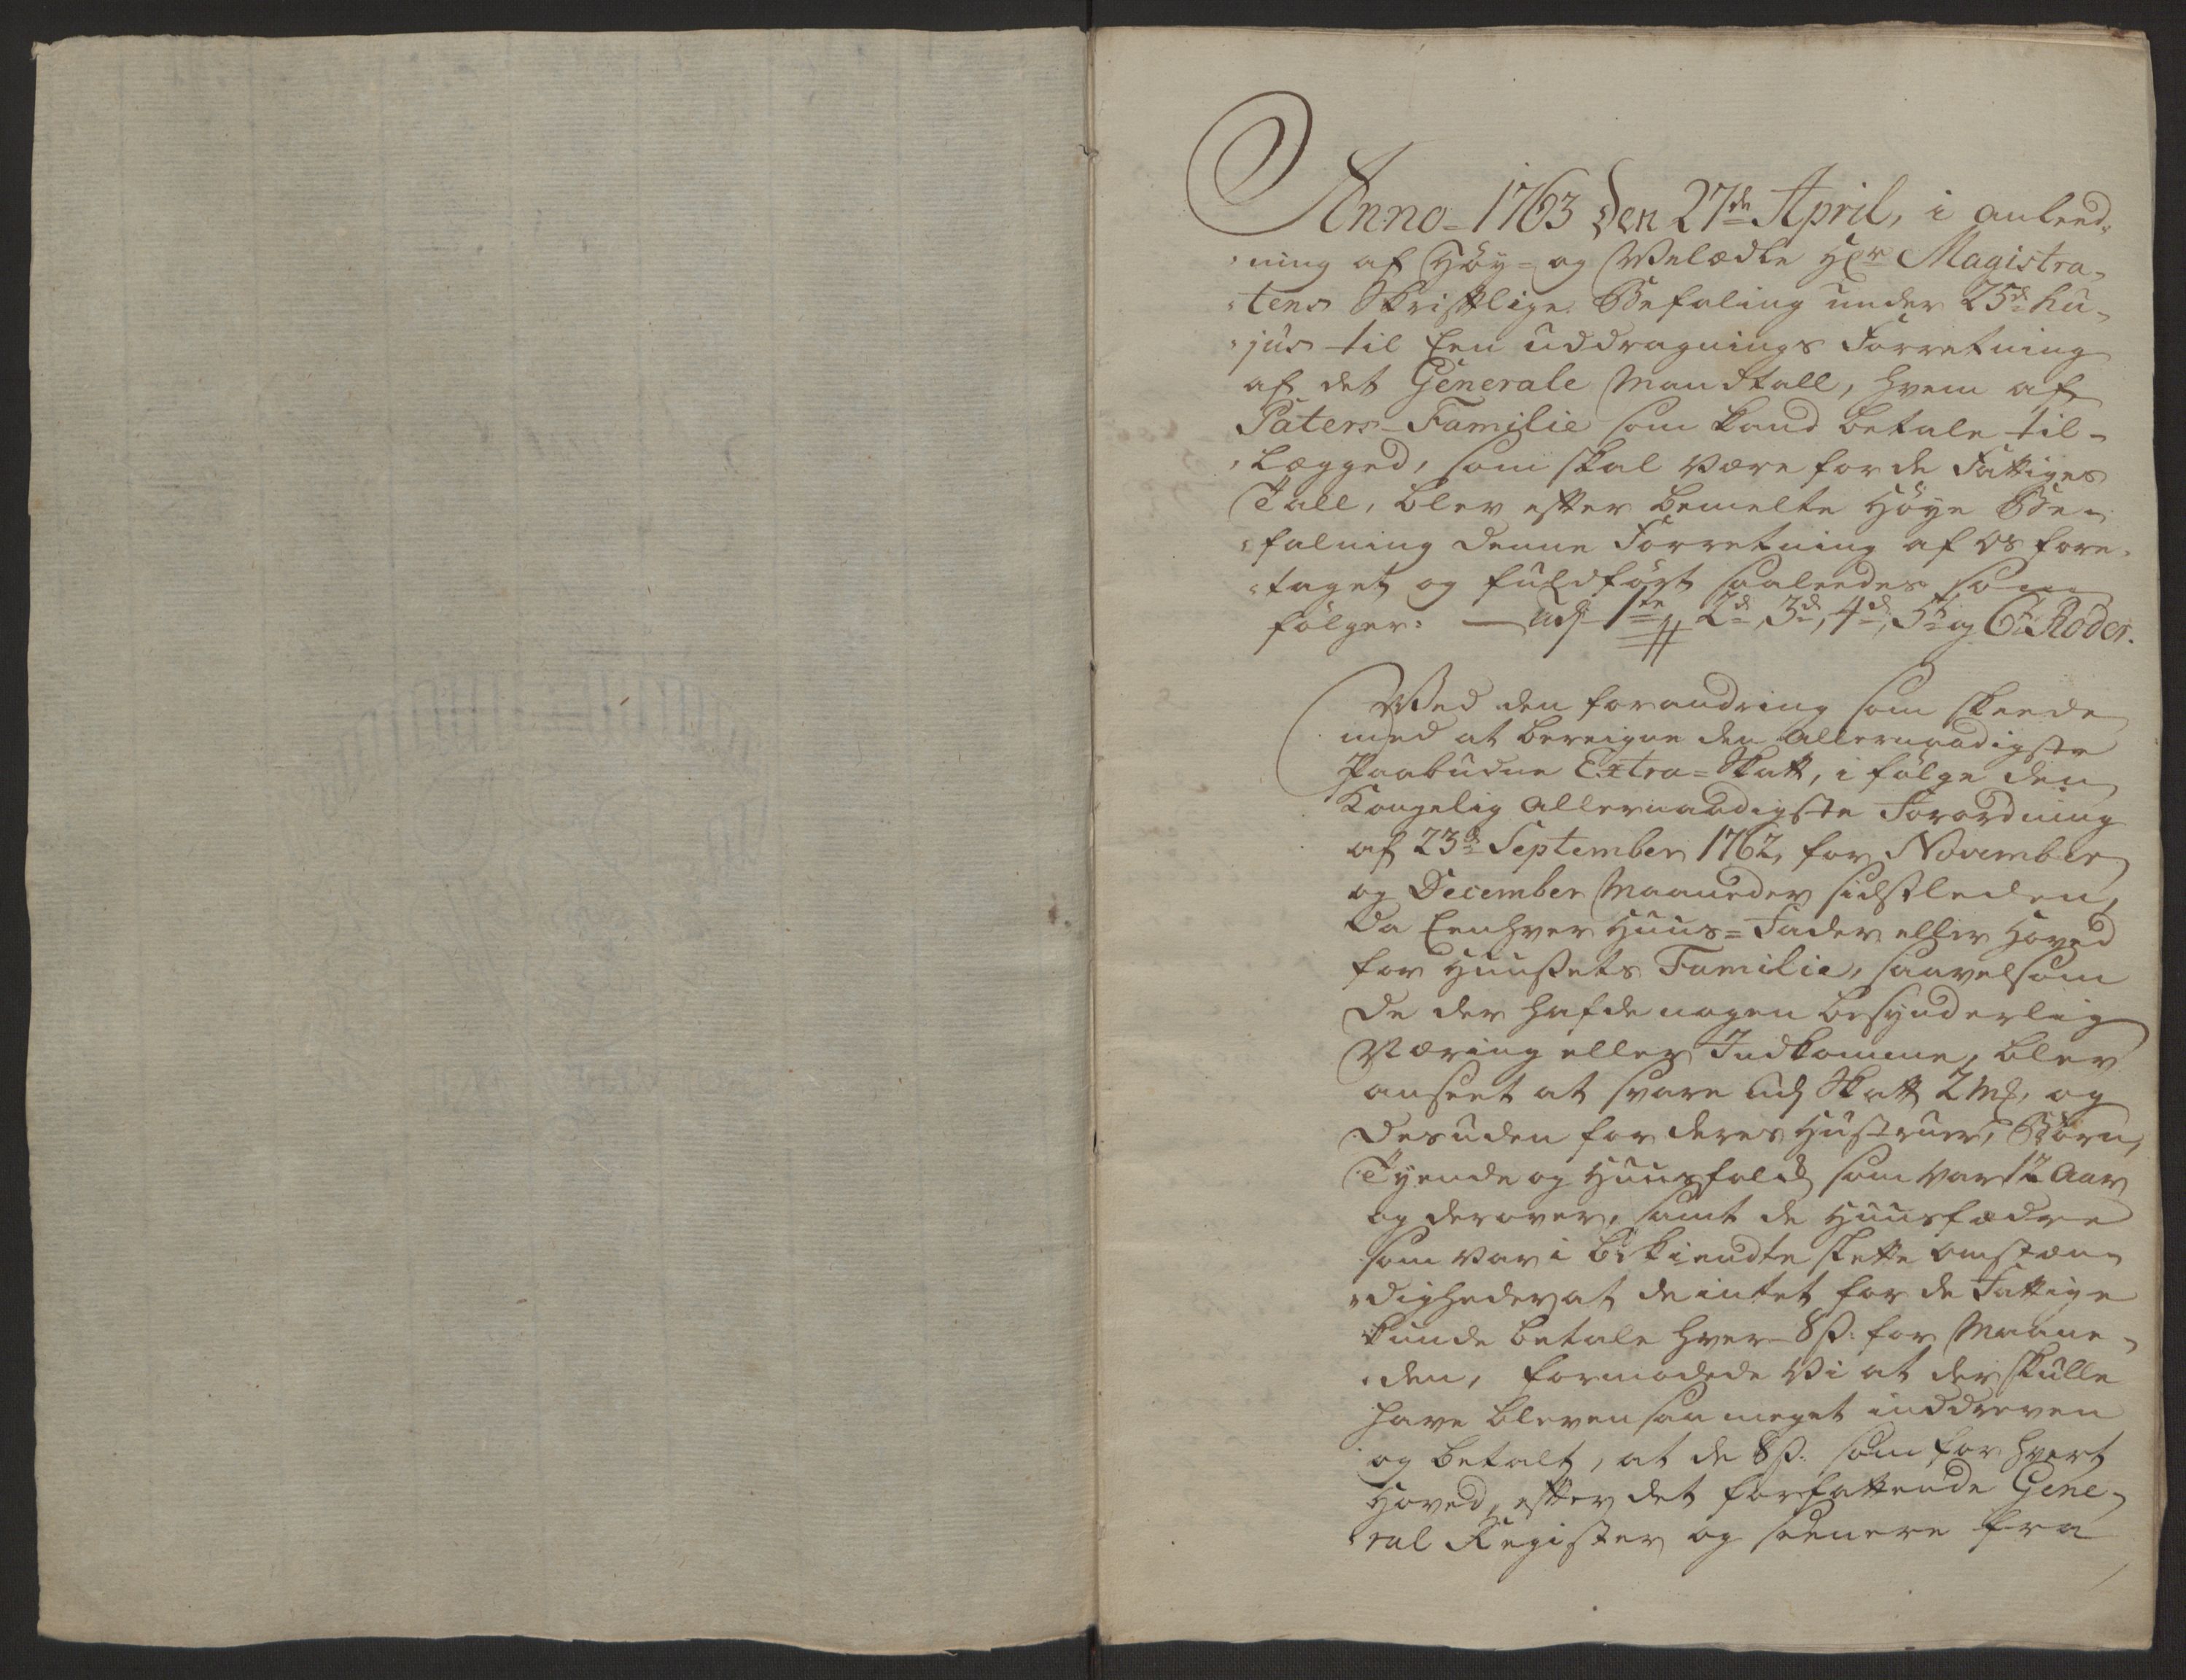 Anno 1763 Den 27de April, i anleed-
ning af Høy- og Velædle Hr Magistra-
tens Skriftlige Befaling under 25de hu-
jus til Een uddragnings Forretning
af det Generale Mandtall, hvem af
Paters-Familie som kand betale til-
lægged, som skal være for de Fattiges
Tall, blev efter bemelte Høye Be-
falning denne Forretning af os fore-
taget og fuldført saaleedes som
følger: — udj 1te, 2de, 3de, 4de, 5te og 6te Roder.
Ved den forandring som skeede
med at bereigne den Allernaadigste
Paabudne Extra-Skatt, i følge den
Kongelig Allernaadigste Forordning
af 23de September 1762, for November
og December Maaneder sidstleden,
Da Eenhver Huus-Fader eller Hoved
for Huusets Familie, saavelsom
de der hafde nogen besynderlig
Næring eller Indkomme, blev
anseet at svare udj Skatt 2 mk, og
desuden for deres Hustruer, Børn,
Tyende og Huusfolck som var 12 Aar
og derover, samt de Huusfædre
som var i bekiendte slette omstæn-
digheder at de intet for de Fattige
kunde betale hver 8 s: for Maane-
den, formodede Vi at der skulle
have bleven saa meget inddreven
og betalt, at de 8 s: som for hvert
Hoved, efter det forfattende Gene-
ral Register og senere fra